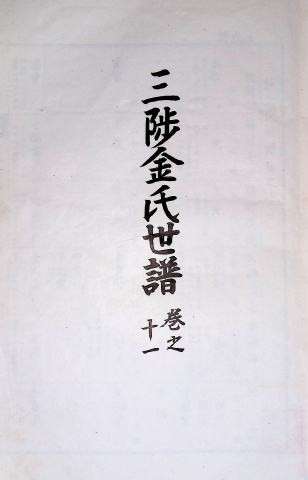 三陟金氏世譜
卷之
十一